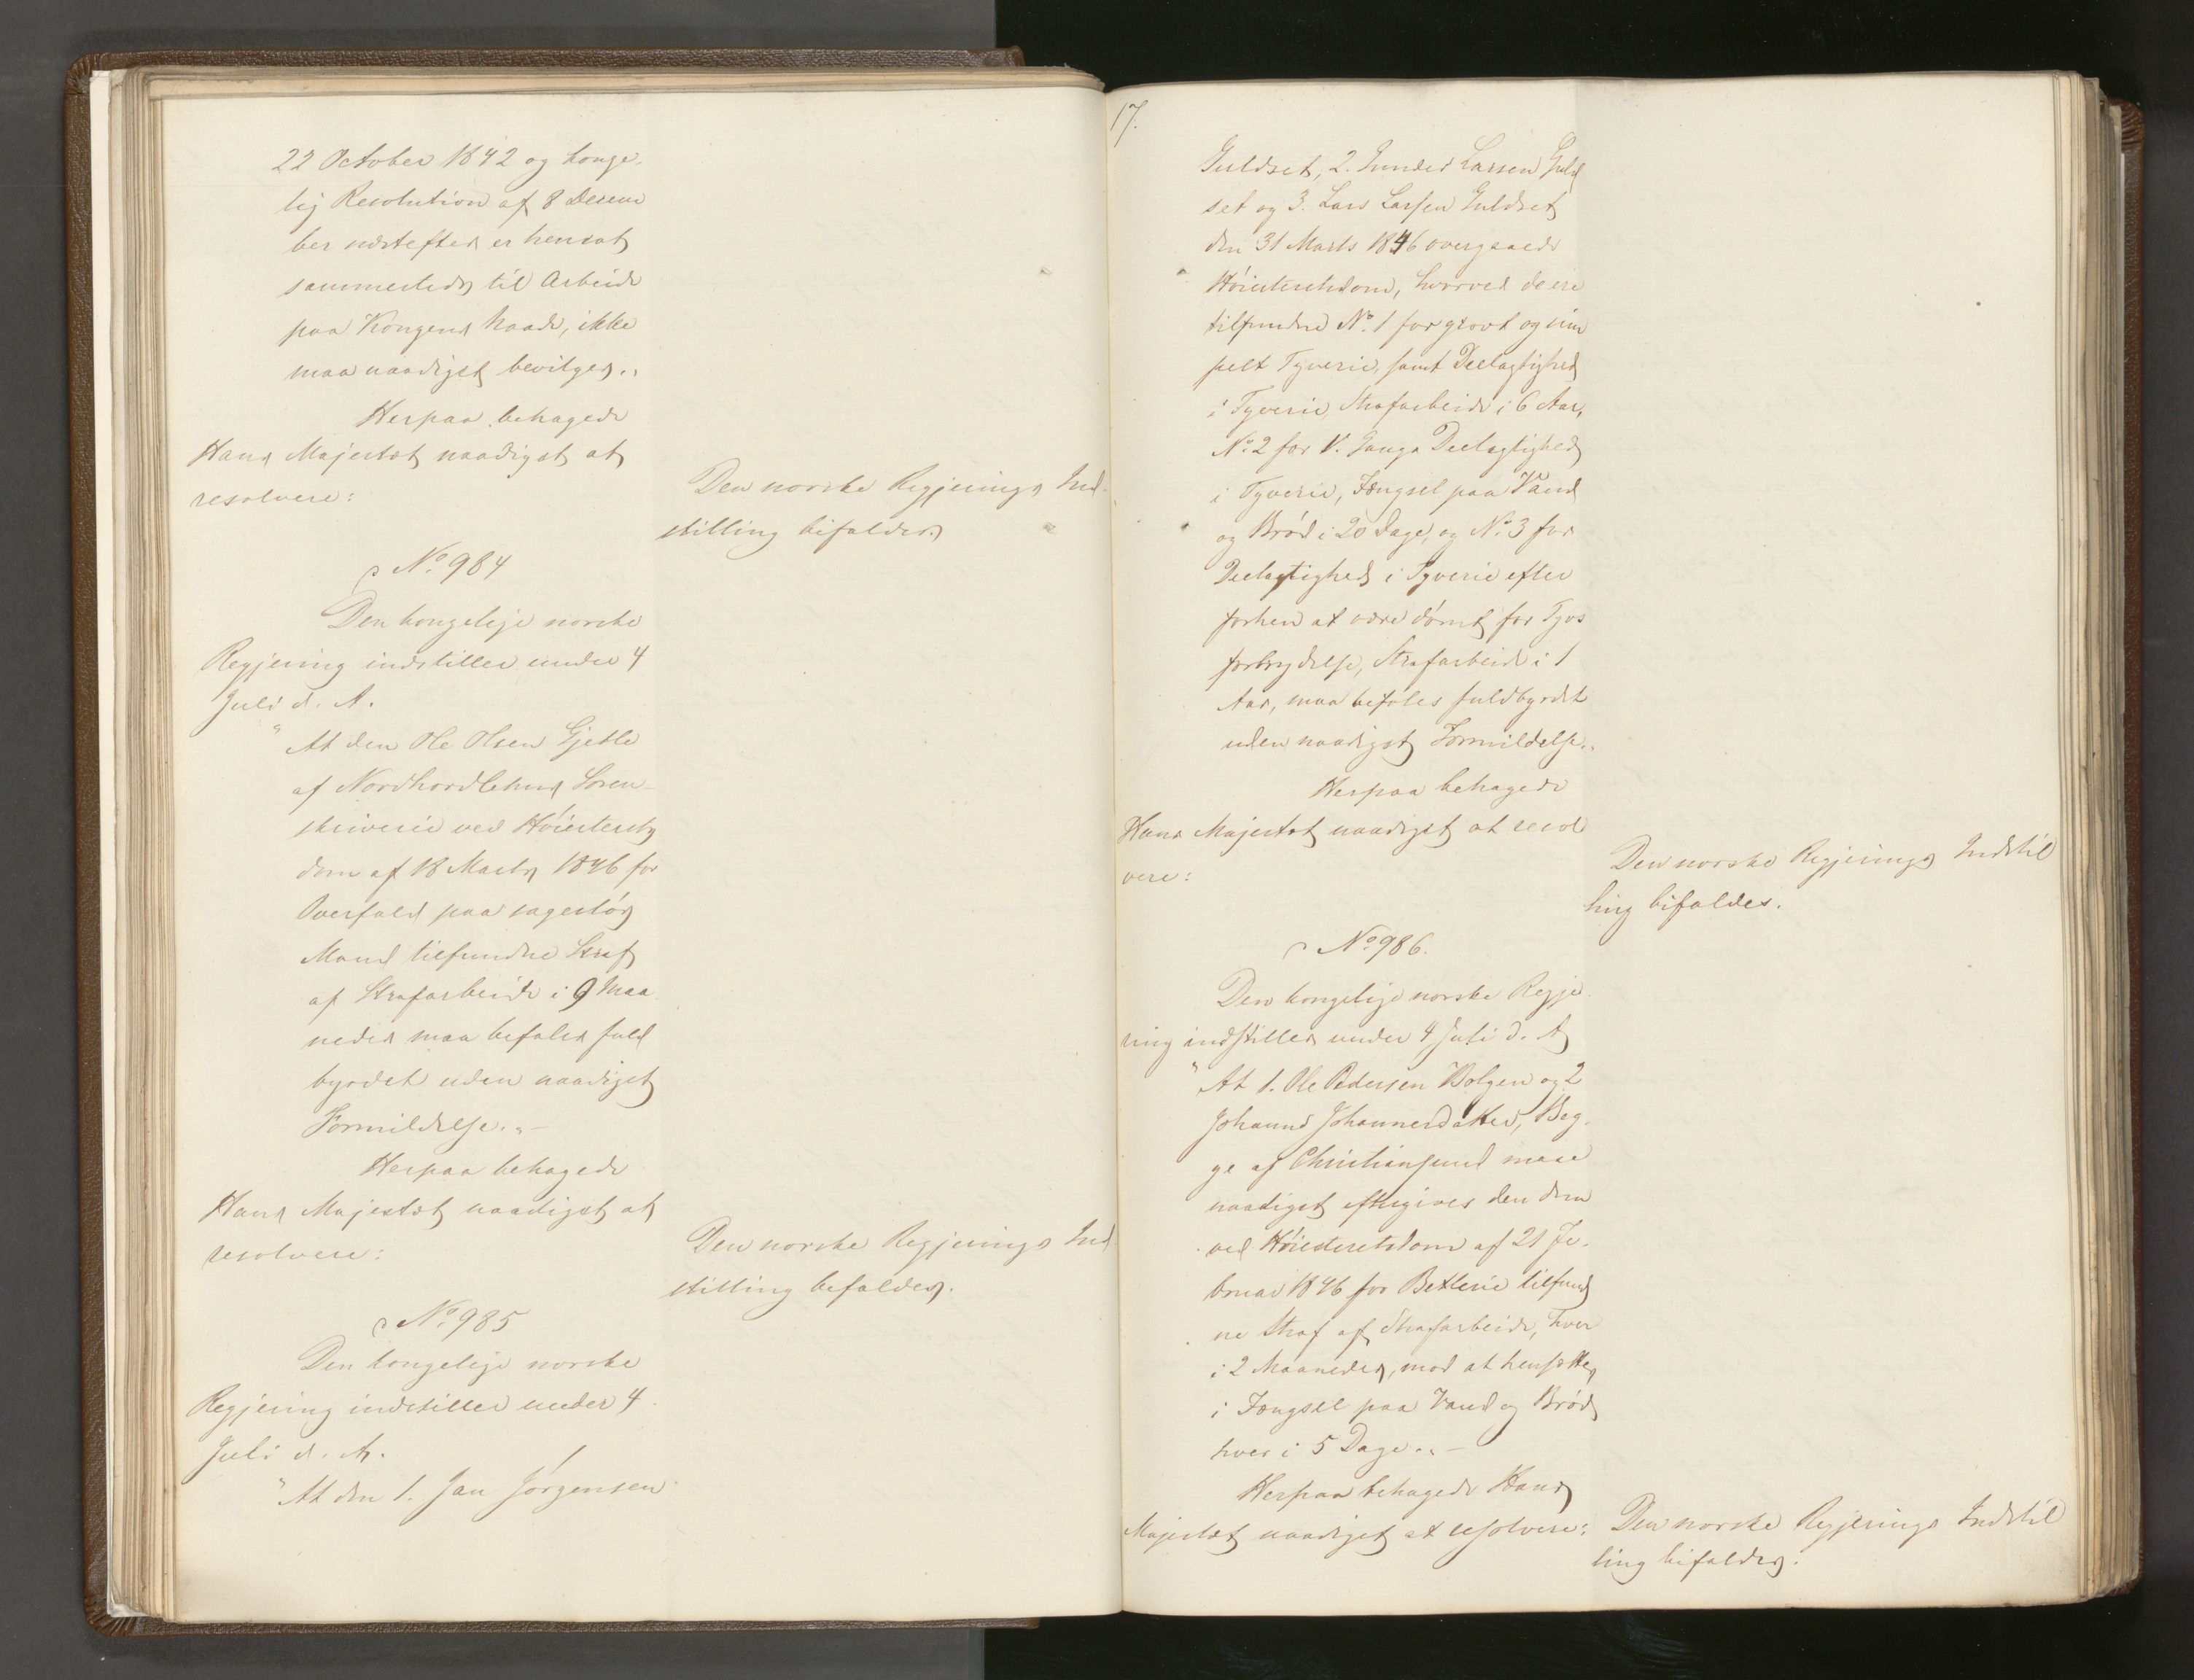 22 October 1842 og konge-
lig Resolution af 8 Decem
ber næstefter er hensat
sammesteds til Arbeide
paa Kongens Naade, ikke
maa naadigst bevilges."
Herpaa behagede
Hans Majestæt naadigst at
resolvere:
Den norske Regjerings Ind-
stilling bifaldes.
No. 984
Den kongelige norske
Regjering indstiller under 4
Juli d. A.
"At den Ole Olsen Gjetle
af Nordhordlehns Soren-
skriverie ved Høiesterets
dom af 18 Marts 1846 for
Overfald paa sagesløs
Mand tilfundne Straf
af Strafarbeide i 9 Maa
neder maa befales fuld
byrdet uden naadigst
Formildelse." -
Herpaa behagede
Hans Majestæt naadigst at
resolvere:
Den norske Regjerings Ind
stilling bifaldes.
No. 985
Den kongelige norske
Regjering indstiller under 4
Juli d. A.
"At den 1. Jan Jørgensen
17.
Guldset, 2. Gunder Larsen Guld
set og 3. Lars Larsen Guldset
den 31 Marts 1846 overgaaede
Høiesteretsdom, hvorved de ere
tilfundne No. 1 for grovt og sim
pelt Tyverie, samt Deelagtighed
i Tyverie, Strafarbeide i 6 Aar,
No. 2 for V. Gangs Deelagtighed
i Tyverie, Fængsel paa Vand
og Brød i 20 Dage, og No. 3 for
Deelagtighed i Tyverie efter
forhen at være dømt for Tyvs
forbrydelse, Strafarbeide i 1
Aar, maa befales fuldbyrdet
uden naadigst Formildelse."
Herpaa behagede
Hans Majestæt naadigst at resol
vere:
Den norske Regjerings Indstil
ling bifaldes.
No. 986.
Den kongelige norske Regje
ring indstiller under 4 Juli d. A
"At 1. Ole Pedersen Bolgen og 2
Johanne Johannesdatter, Beg-
ge af Christiansund maae
naadigst eftergives den dem
ved Høiesteretsdom af 21 Fe-
bruar 1846 for Betlerie tilfund
ne Straf af Strafarbeide, hver
i 2 Maaneder, mod at hensættes
i Fængsel paa Vand og Brød
hver i 5 Dage." -
Herpaa behagede Hans
Majestæt naadigst at resolvere:
Den norske Regjerings Indstil
ling bifaldes.